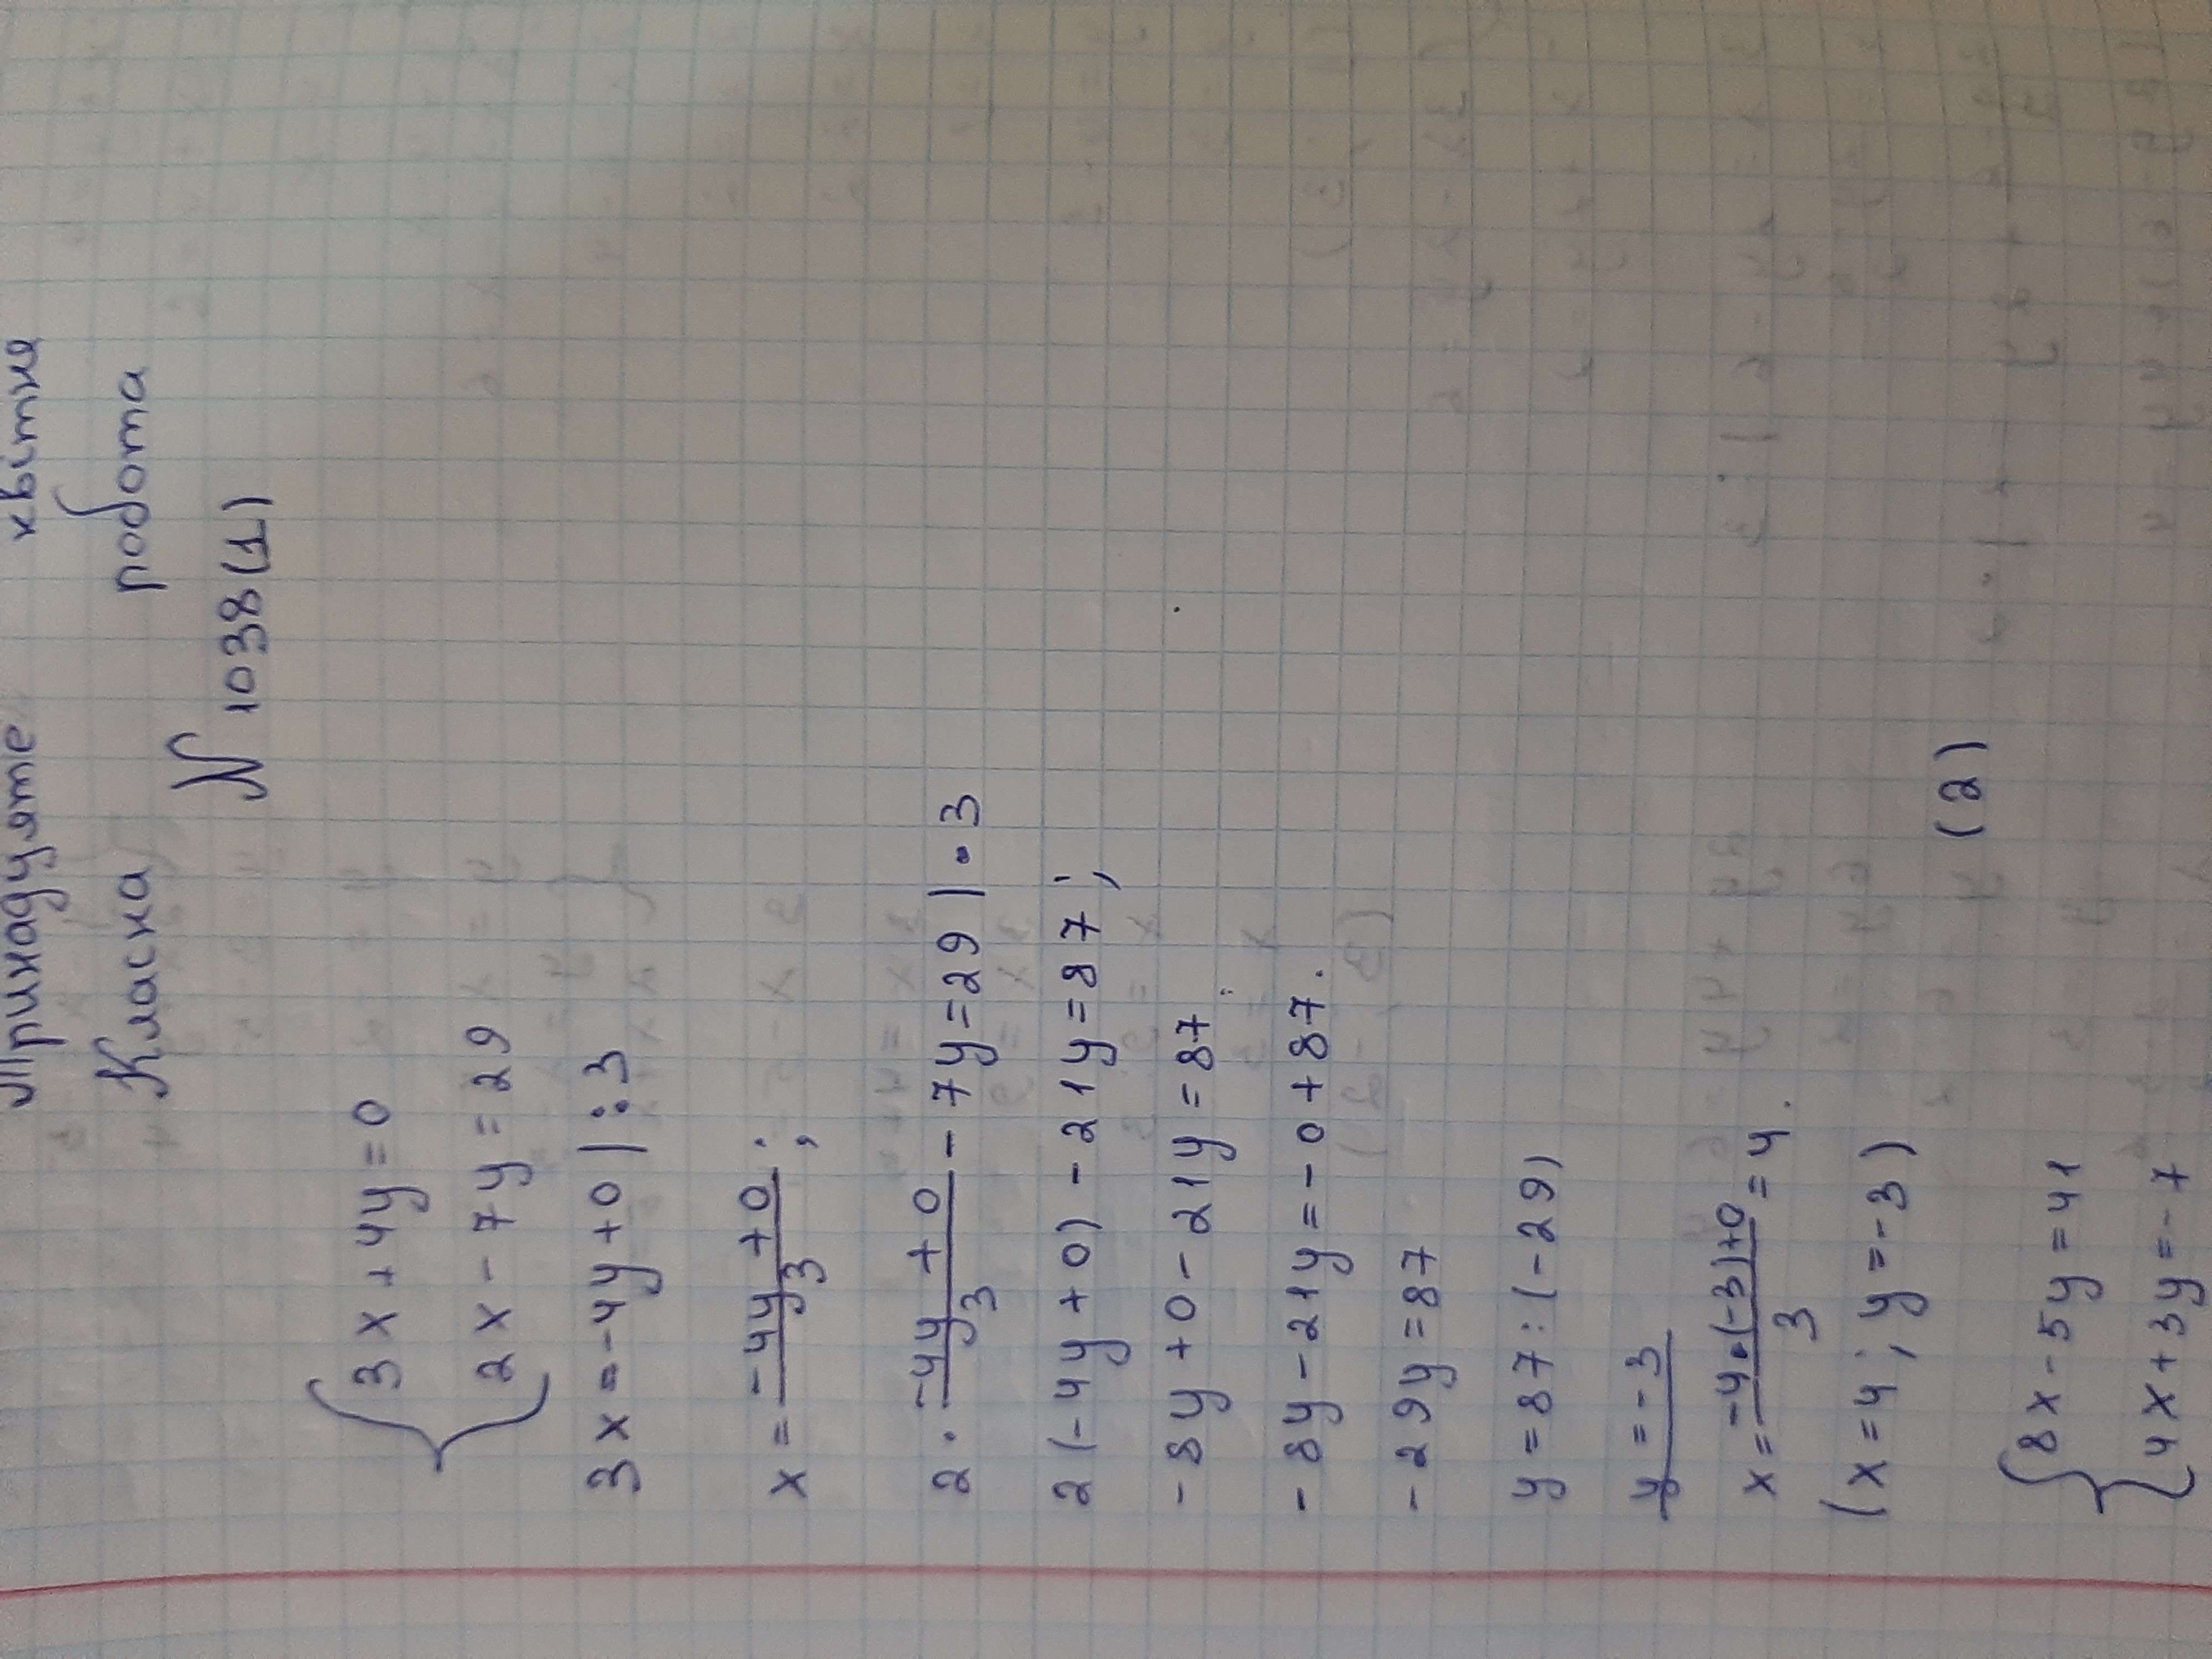 Тринадцяте квітня
Класна робота
№ 1038(1)
{ 3x + 4y = 0
2x - 7y = 29
3x = -4y + 0 | : 3
x = (-4y + 0)/3 ;
2 · (-4y + 0)/3 - 7y = 29 | · 3
2(-4y + 0) - 21y = 87;
-8y + 0 - 21y = 87
-8y - 21y = -0 + 87.
-29y = 87
y = 87 : (-29)
y = -3
x = (-4·(-3)+0)/3 = 4.
(x = 4; y = -3)
(2)
{ 8x - 5y = 41
4x + 3y = -7